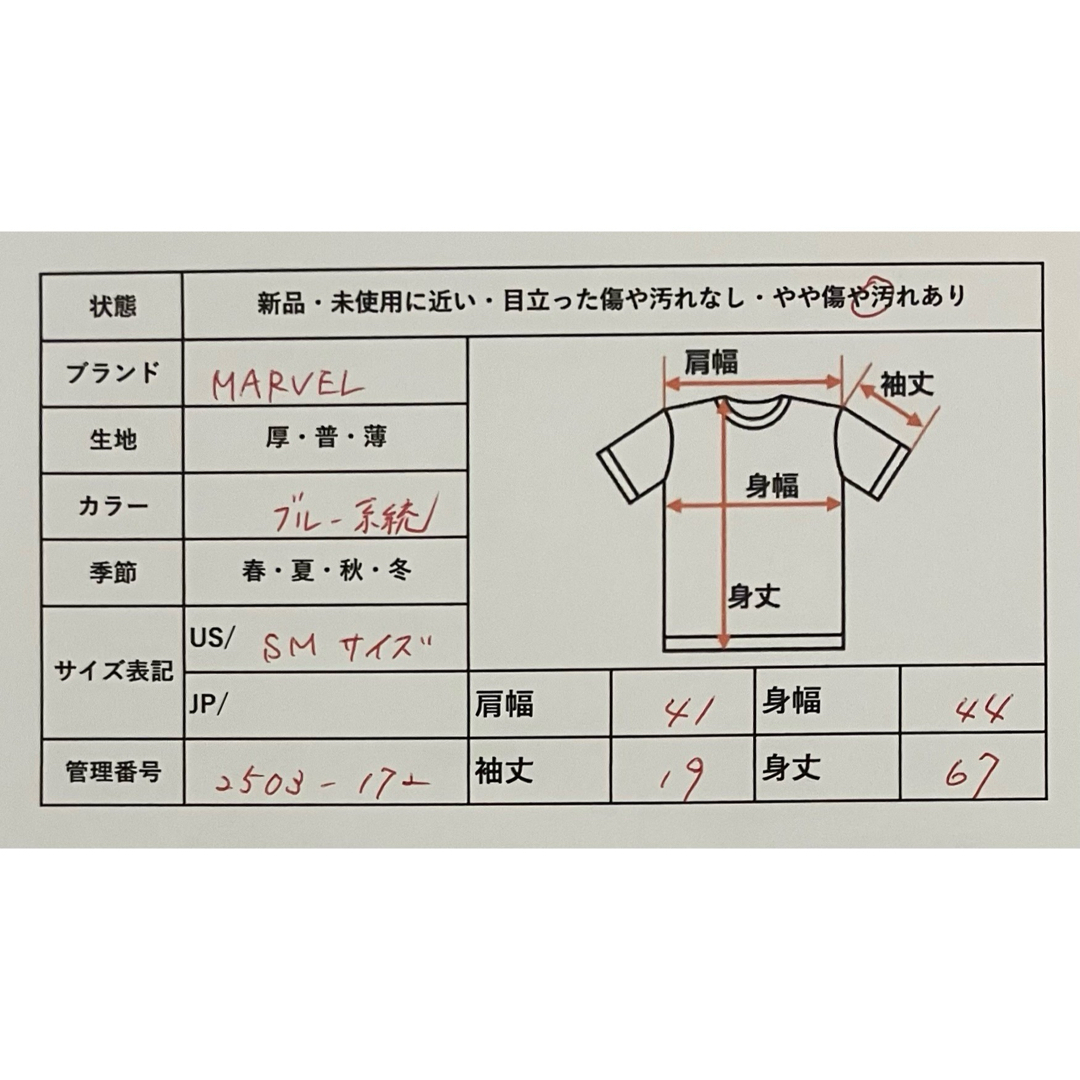 状態 新品・未使用に近い・目立った傷や汚れなし・やや傷や汚れあり
ブランド MARVEL
生地 厚・普・薄
カラー ブルー系統
季節 春・夏・秋・冬
サイズ表記 US/ SMサイズ
JP/
管理番号 2503-172
肩幅
袖丈
身幅
身丈
肩幅 41 身幅 44
袖丈 19 身丈 67